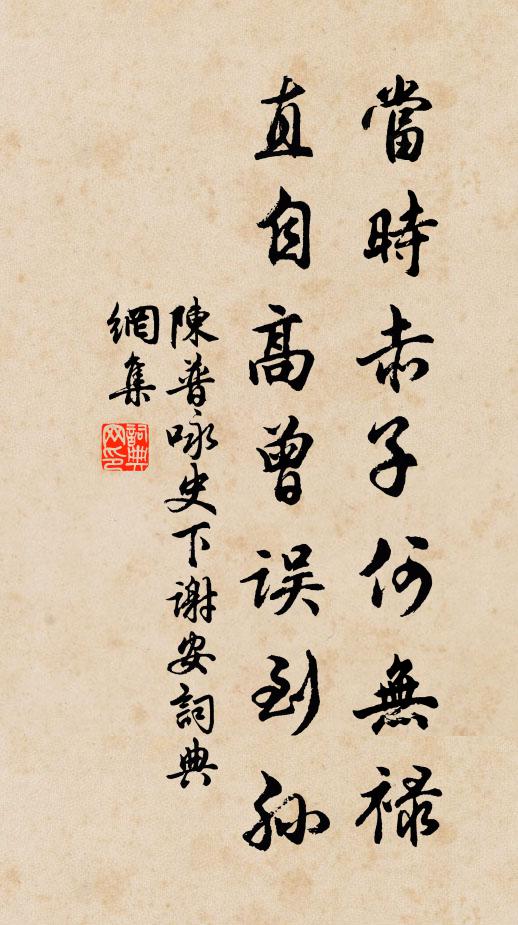 當時赤子何無禄
直自高曾误到孫
陳普咏史下谢安詞典
網集
詞典
网印